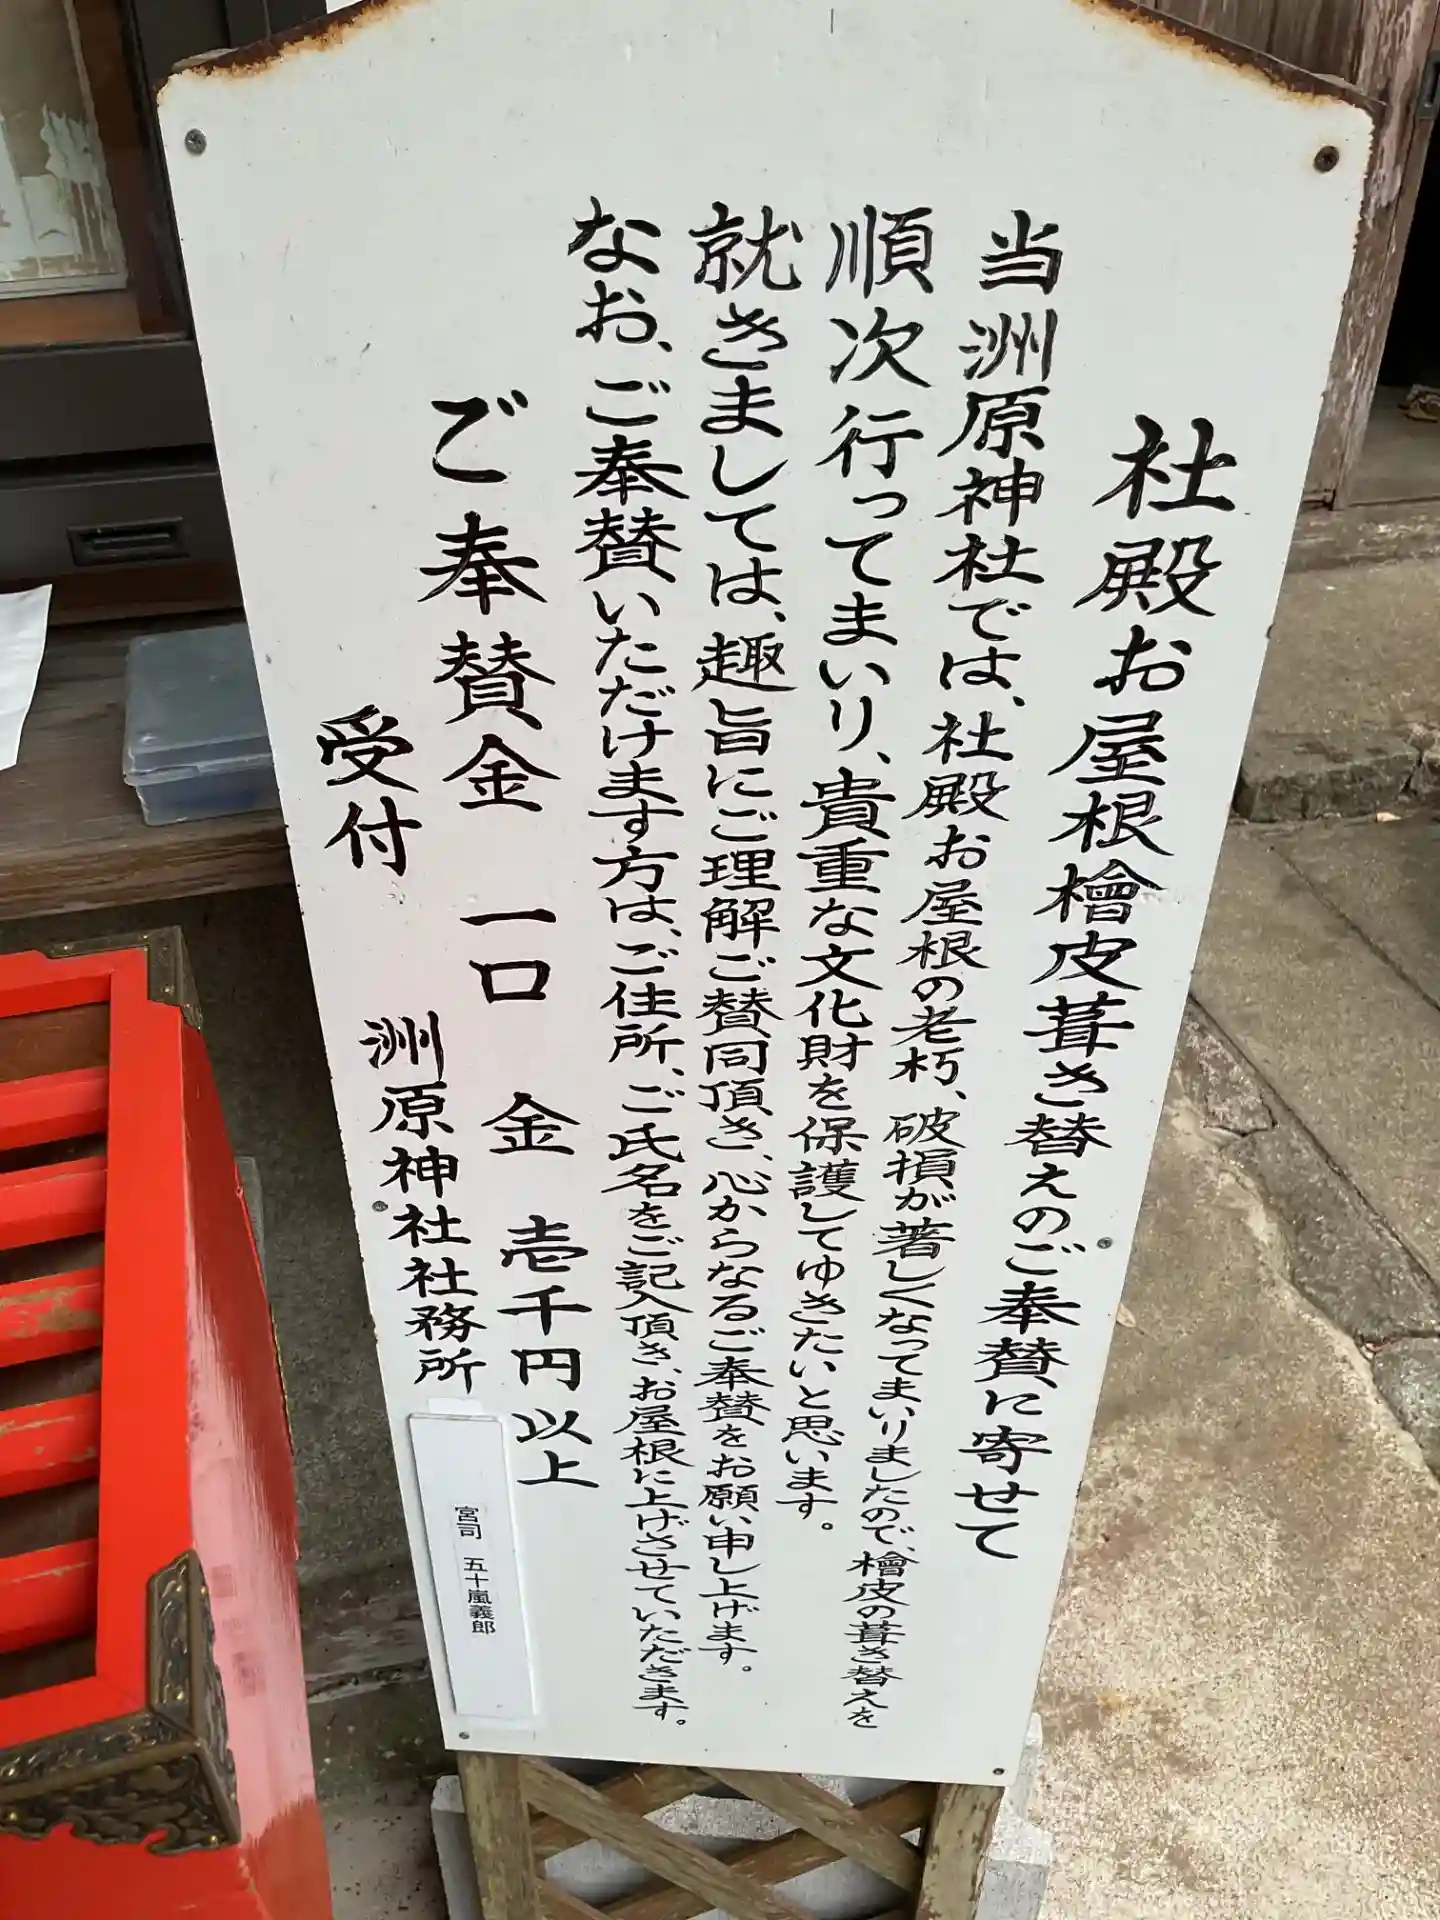 社殿お屋根檜皮葺き替えのご奉賛に寄せて
当洲原神社では、社殿お屋根の老朽、破損が著しくなってまいりましたので、檜皮の葺き替えを
順次行ってまいり、貴重な文化財を保護してゆきたいと思います。
就きましては、趣旨にご理解ご賛同頂き、心からなるご奉賛をお願い申し上げます。
なお、ご奉賛いただけます方は、ご住所、ご氏名をご記入頂き、お屋根に上げさせていただきます。
ご奉賛金 一口 金 壱千円以上
受付 洲原神社社務所
宮司 五十嵐義郎